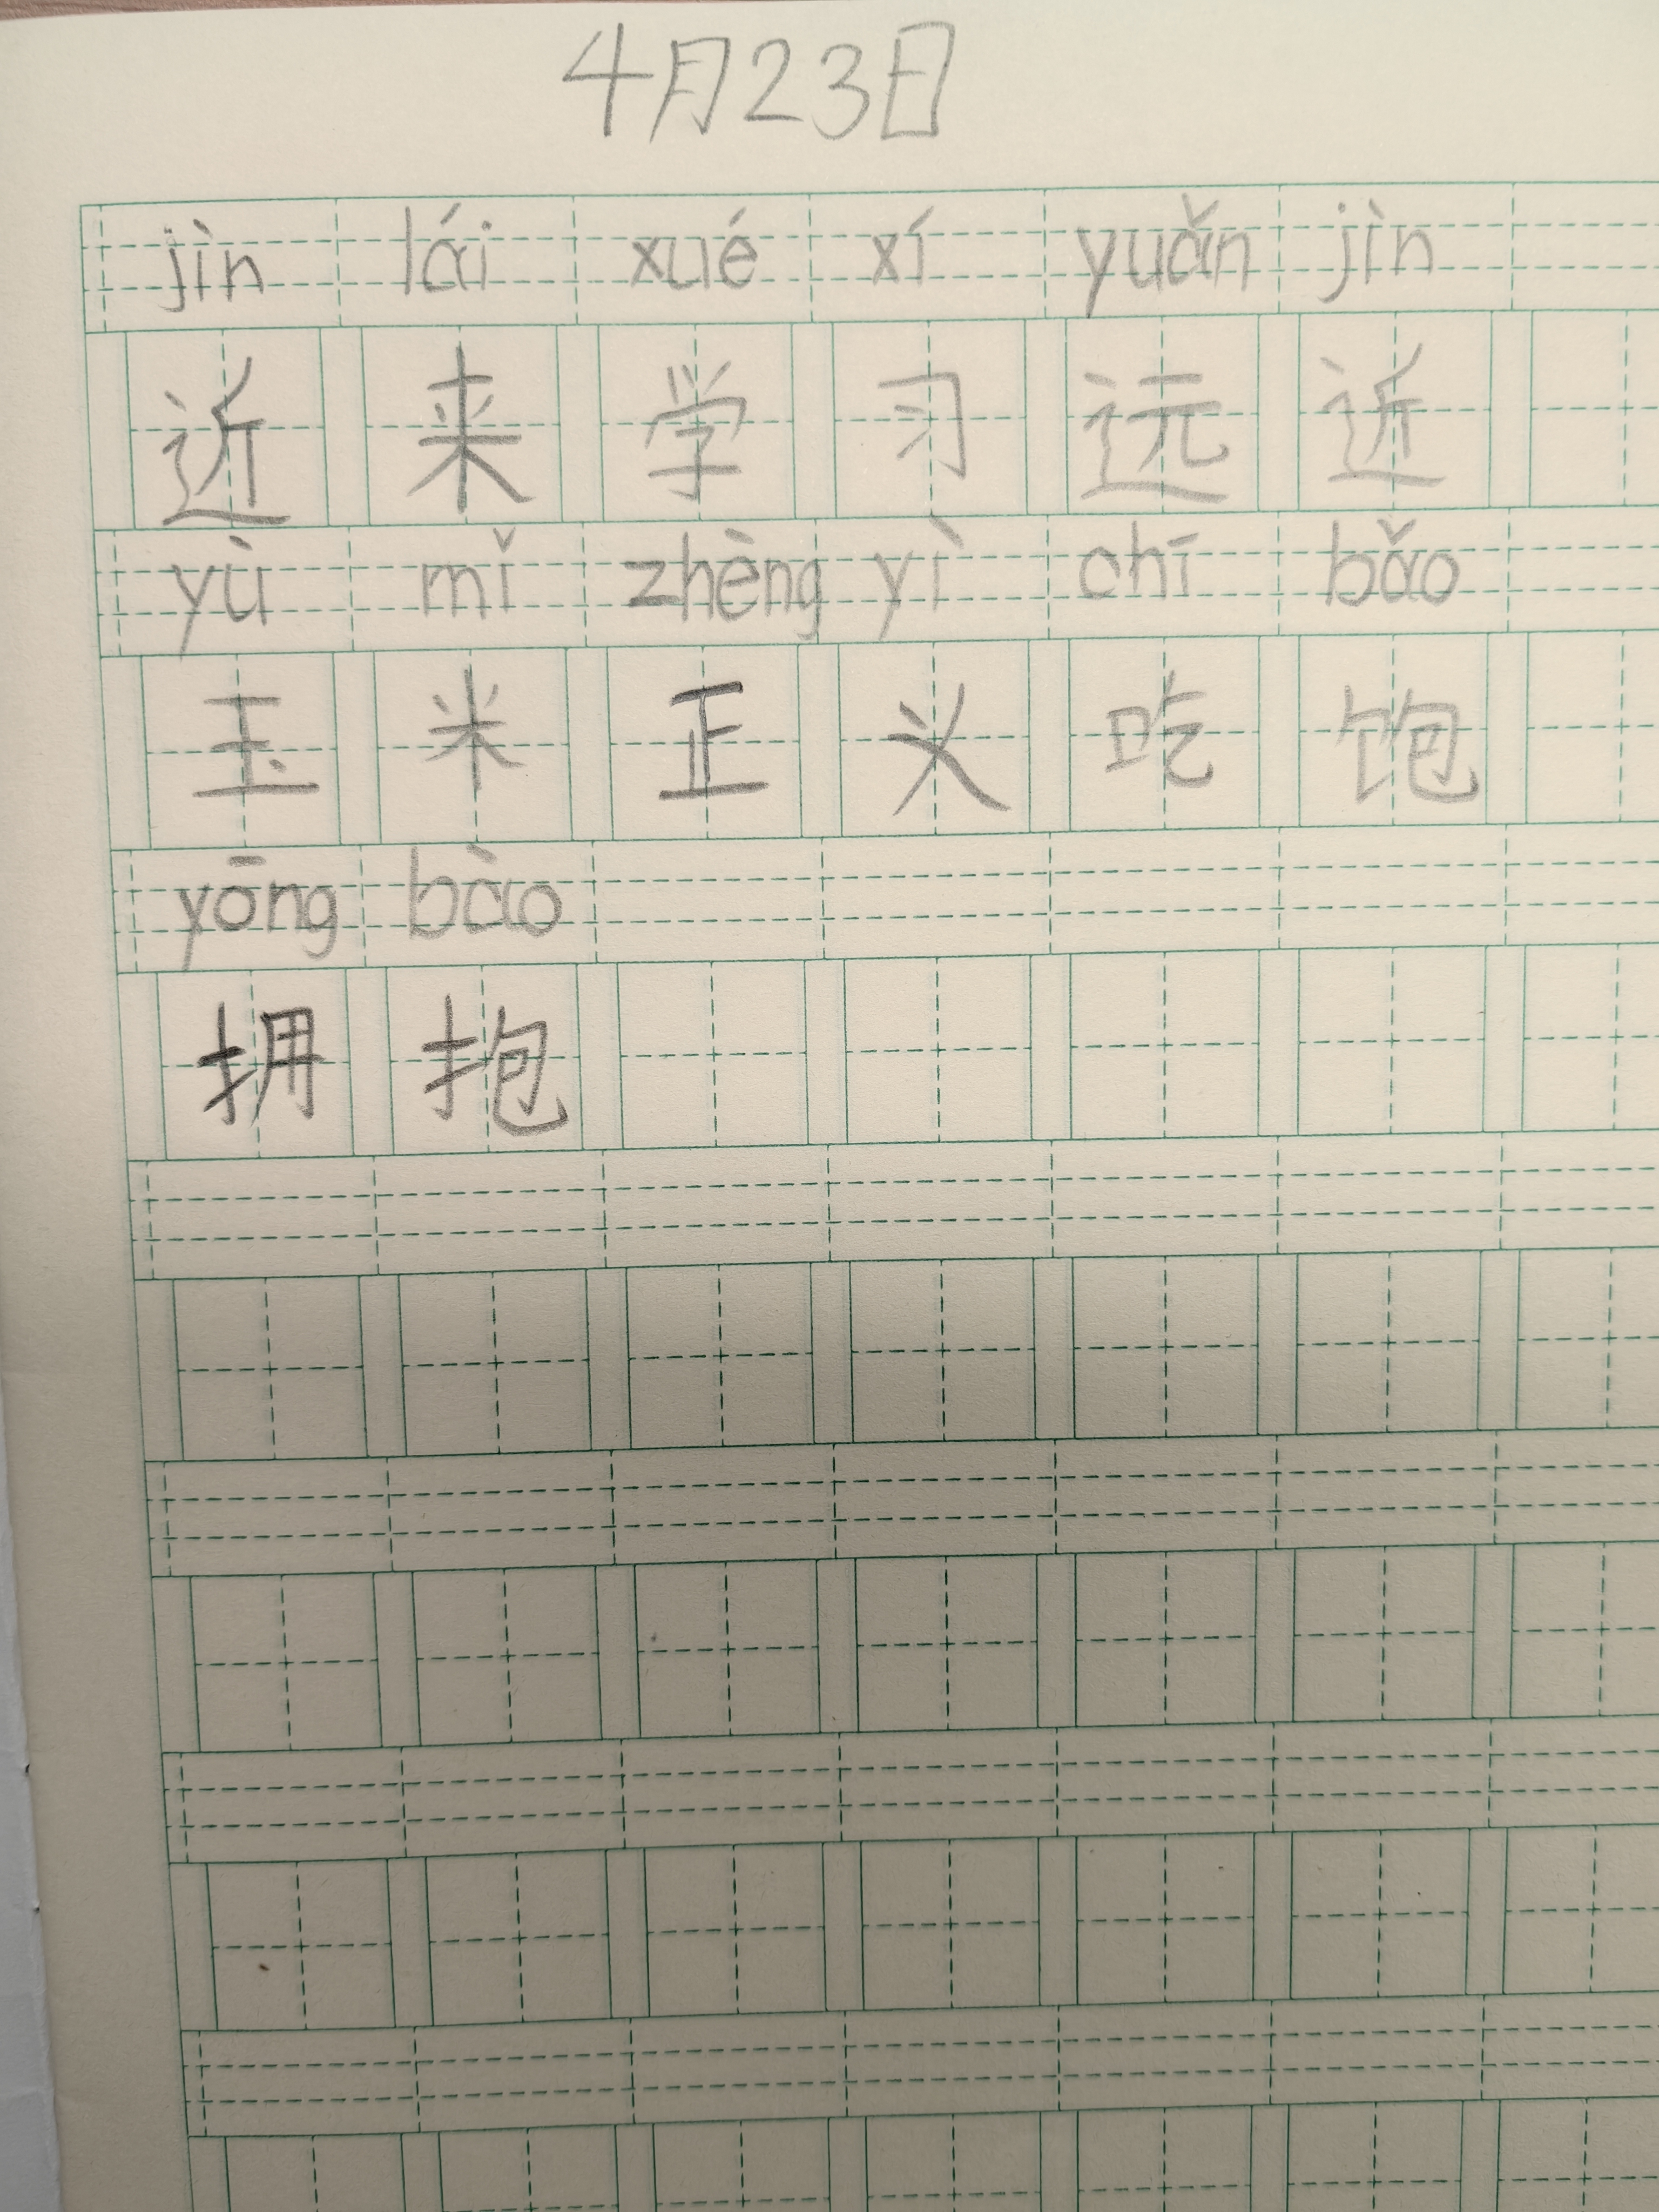 4月23日
jìn lái xué xí yuǎn jìn
近来学习远近
yù mǐ zhèng yì chī bǎo
玉米正义吃饱
yōng bào
拥抱